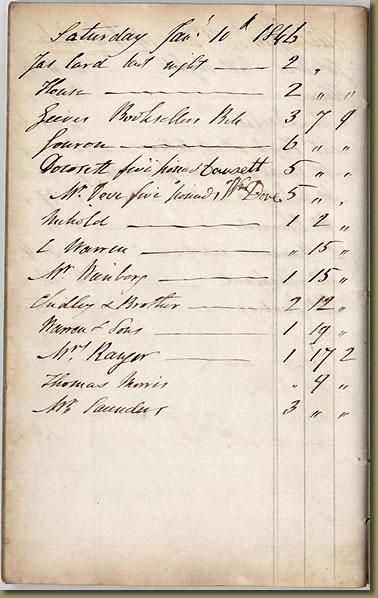 Saturday Jan.y 10th 1846
Jas Card last night — 2 „
House — 2 „ „
Reeves Booksellers Bill 3 7 9
— 6 „ „
Dowsett five pound Dowsett 5 „ „
Mr. Dove five pounds, Wm Dove 5 „ „
— 1 2 „
L Warren — „ 15 „
Mr — 1 15 „
& Brother — 2 12 „
Warren & Sons — 1 19 „
Mrs Rayer — 1 17 2
Thomas Morris „ 9 „
Mr Saunders 3 „ „